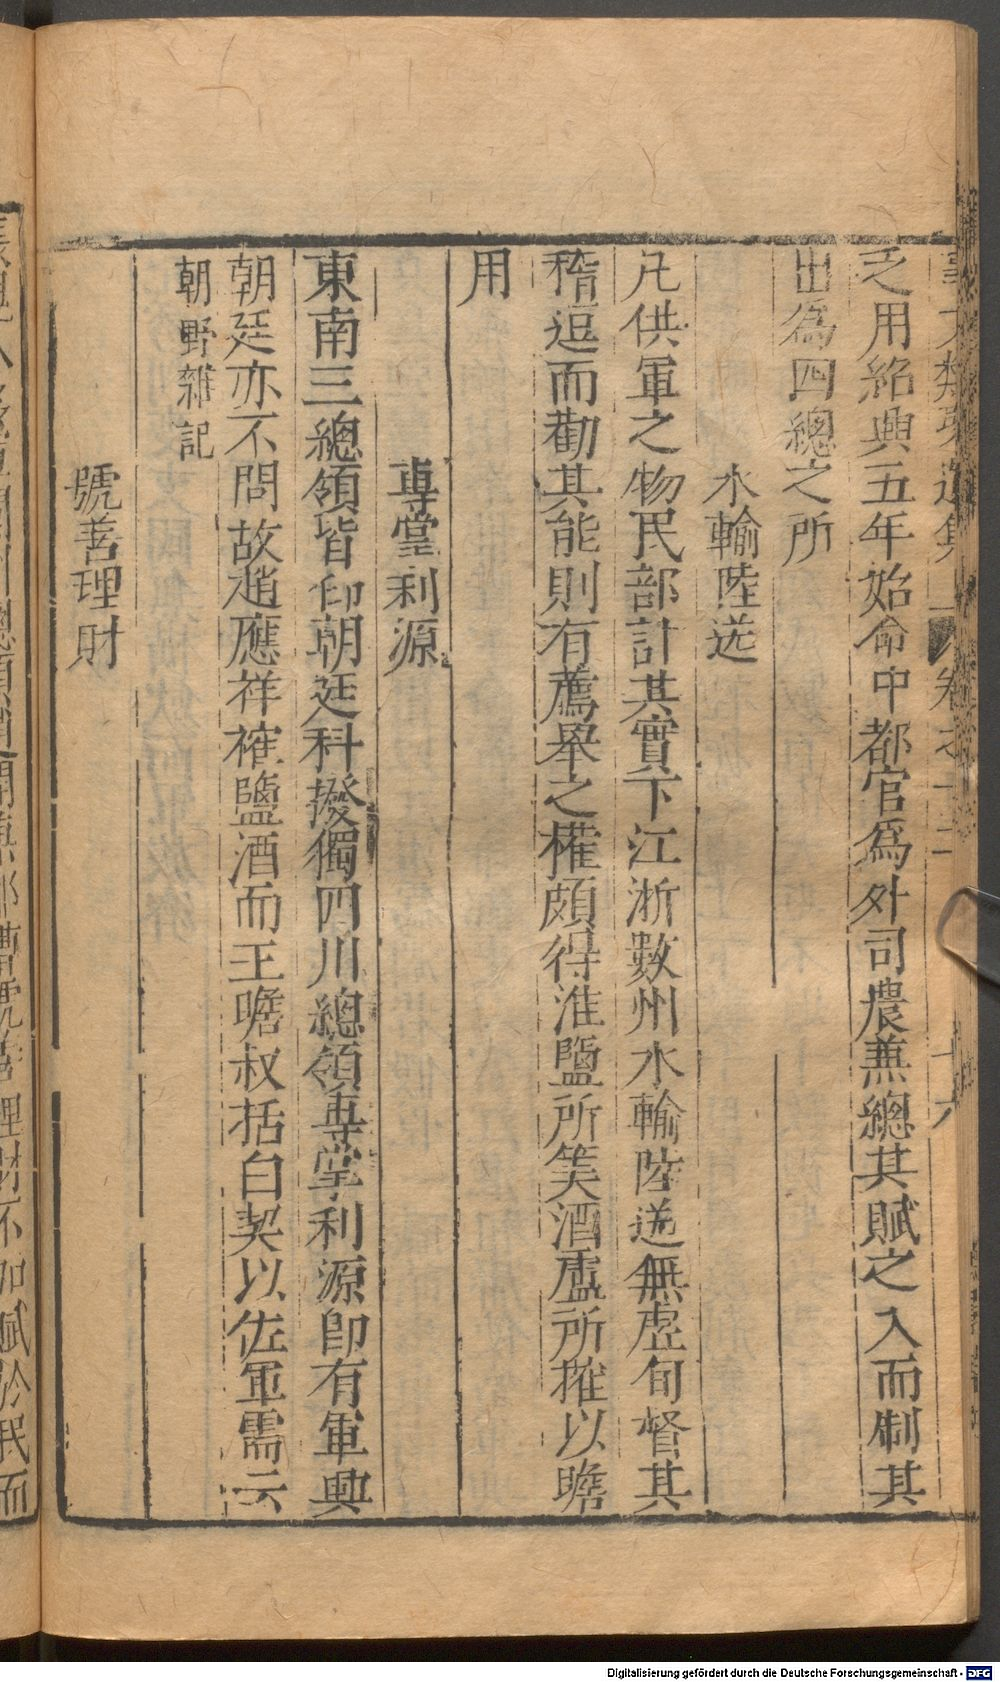 事文類聚遺集 卷之十二 十六
之用紹興五年始命中都官爲外司農兼總其賦之入而制其
出爲四總之所
水輸陸送
凡供軍之物民部計其實下江浙數州水輸陸送無虛旬督其
稽逗而勸其能則有薦舉之權頗得淮鹽所筭酒盧所搉以贍
用
專堂利源
東南三總領皆仰朝廷科撥獨四川總領專掌利源即有軍興
朝廷亦不問故趙應祥榷鹽酒而王瞻叔括白契以佐軍需云
朝野雜記
號善理財
理財不加賦於民而
Digitalisierung gefördert durch die Deutsche Forschungsgemeinschaft - DFG